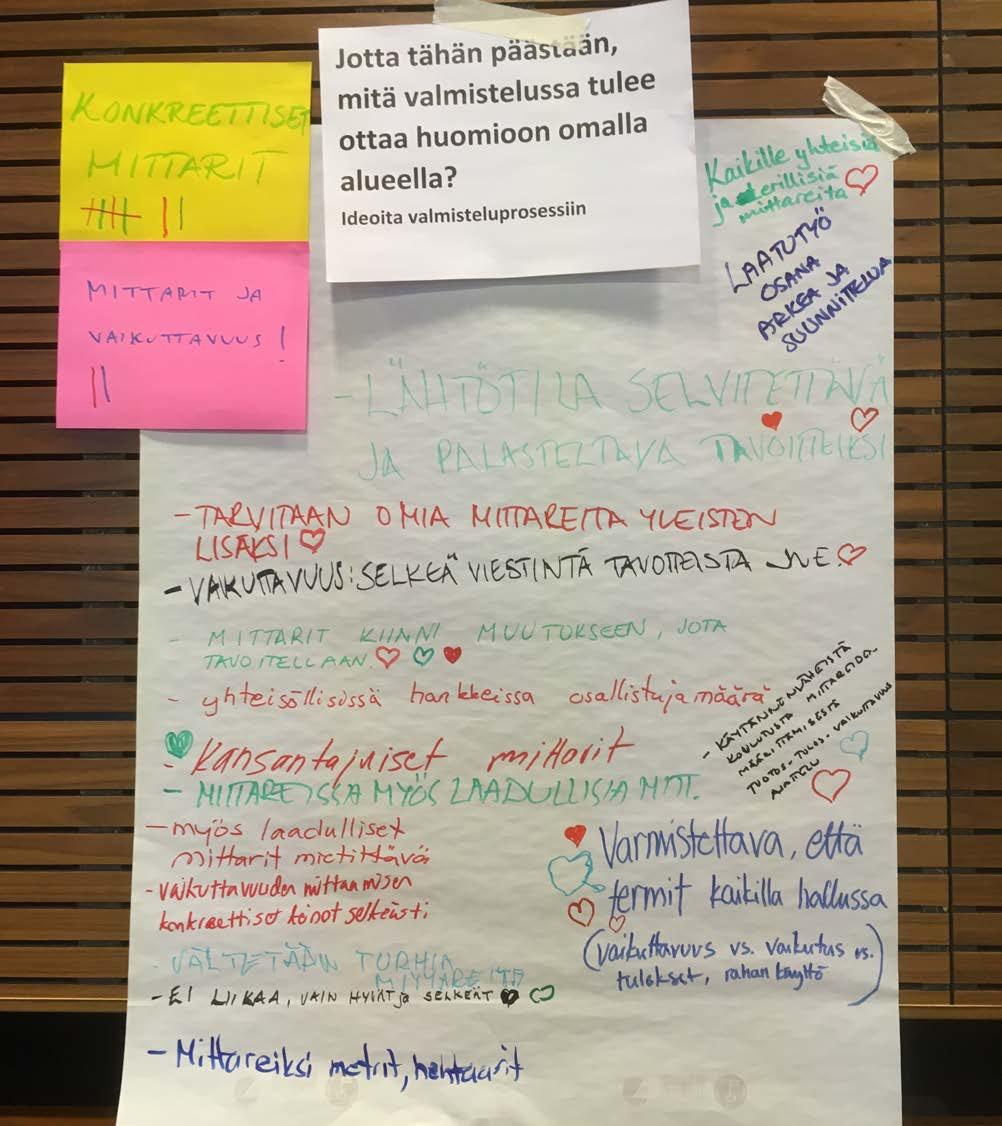 Jotta tähän päästään,
mitä valmistelussa tulee
ottaa huomioon omalla
alueella?
Ideoita valmisteluprosessiin
KONKREETTISET
MITTARIT
MITTARIT JA
VAIKUTTAVUUS!
Kaikille yhteisiä
ja erillisiä
mittareita
LAATUTYÖ
OSANA
ARKEA JA
SUUNNITTELUA
- LÄHTÖTILA SELVITETTÄVÄ
JA PALASTELTAVA TAVOITTEIKSI
- TARVITAAN OMIA MITTAREITA YLEISTEN
LISÄKSI
- VAIKUTTAVUUS: SELKEÄ VIESTINTÄ TAVOITTEISTA JNE.
- MITTARIT KIINNI MUUTOKSEEN, JOTA
TAVOITELLAAN.
- yhteisöllisissä hankkeissa osallistujamäärä
- Kansantajuiset mittarit
- MITTAREISSA MYÖS LAADULLISIA MITT.
- KÄYTÄNNÖNLÄHEISTÄ
KOULUTUSTA MITTAREIDEN
MÄÄRITTÄMISESTÄ
TUOTOS-TULOS-VAIKUTTAVUUS
AJATTELU
- myös laadulliset
mittarit mietittävä
- vaikuttavuuden mittaamisen
konkreettiset keinot selkeästi
Varmistettava, että
termit kaikilla hallussa
(vaikuttavuus vs. vaikutus vs.
tulokset, rahan käyttö)
- VÄLTETÄÄN TURHIA
MITTAREITA
- EI LIIKAA, VAIN HYVÄT ja SELKEÄT
- Mittareiksi metrit, hehtaarit